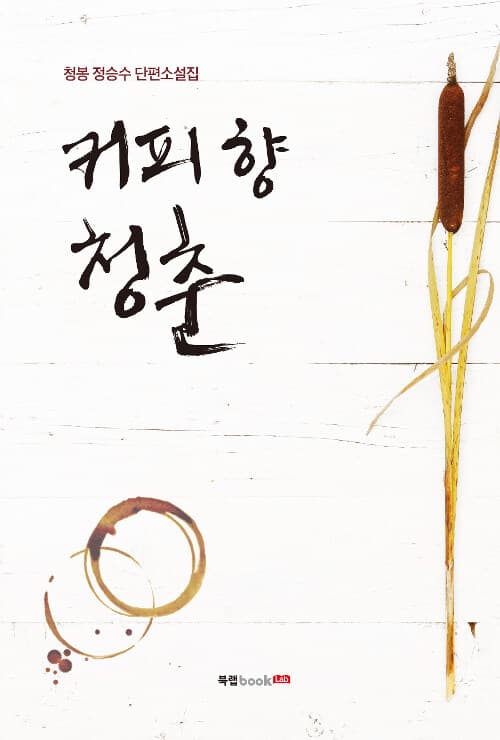 청봉 정승수 단편소설집
커피 향
청춘
북랩 book Lab